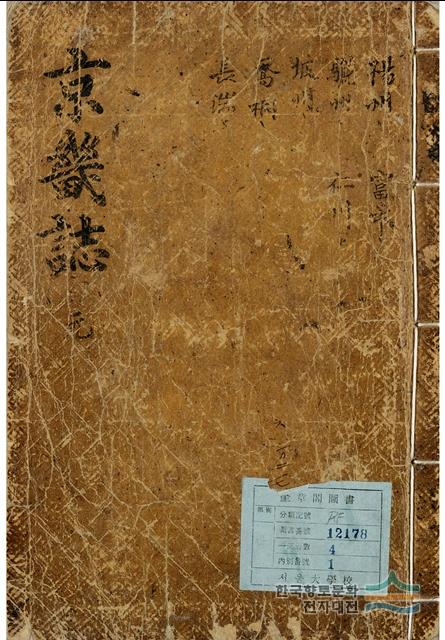 京畿誌 元
楊州 富平
驪州 仁川
坡州
喬桐
長湍
奎章閣圖書
分類記號
圖書番號 12178
冊數 4
內別番號 1
서울大學校
한국향토문화
전자대전